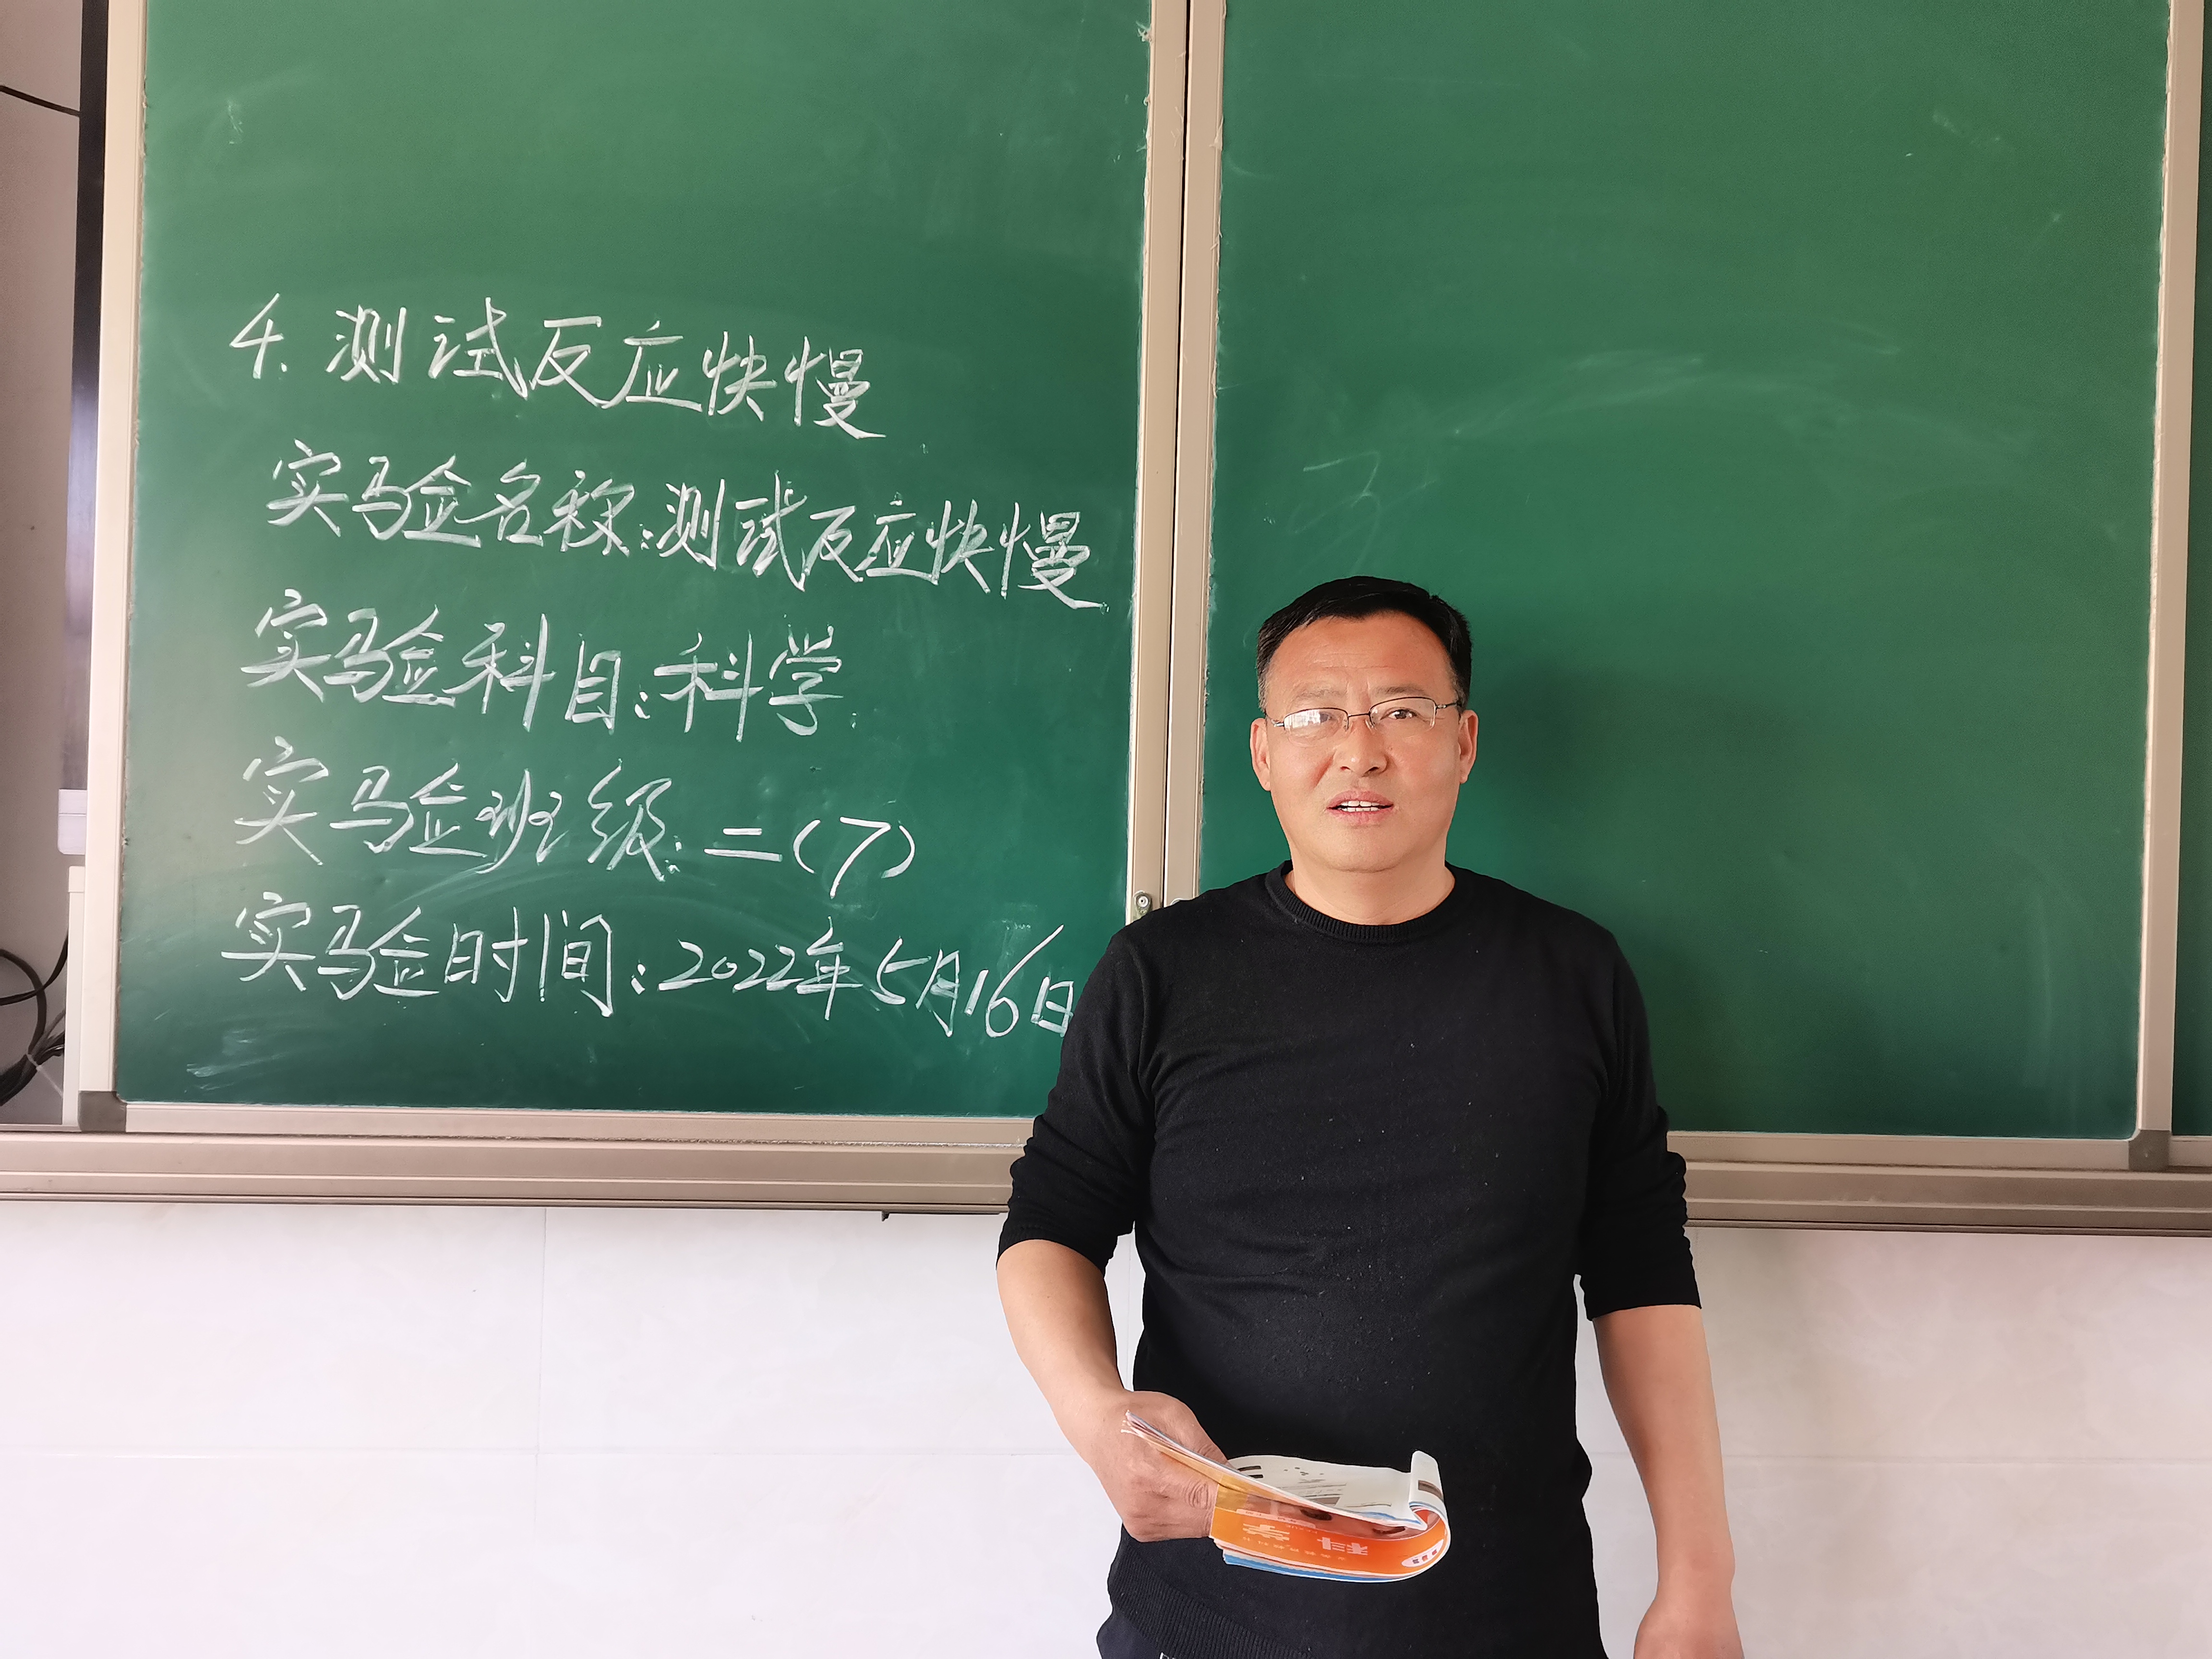 4. 测试反应快慢
实验名称:测试反应快慢
实验科目:科学
实验班级:二(7)
实验时间:2022年5月16日
科学